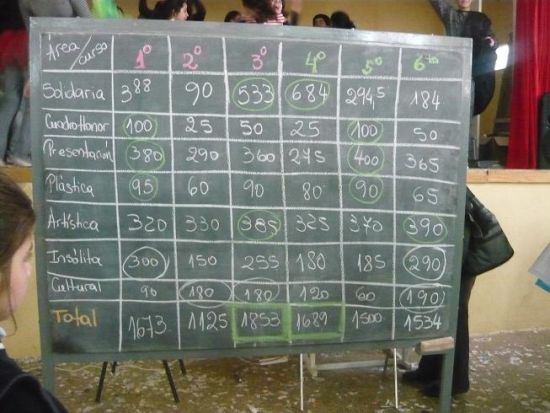 Área/curso 1º 2º 3º 4º 5º 6to
Solidaria 388 90 533 684 294,5 184
Cuadro Honor 100 25 50 25 100 50
Presentación 380 290 360 275 400 365
Plástica 95 60 90 80 90 65
Artística 320 330 385 325 370 390
Insólita 300 150 255 180 185 290
Cultural 90 180 180 120 60 190
Total 1673 1125 1853 1689 1500 1534